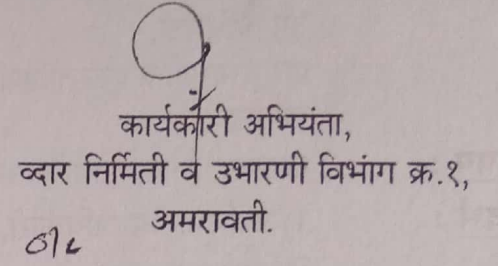 कार्यकारी अभियंता,
व्दार निर्मिती व उभारणी विभाग क्र.१,
अमरावती.